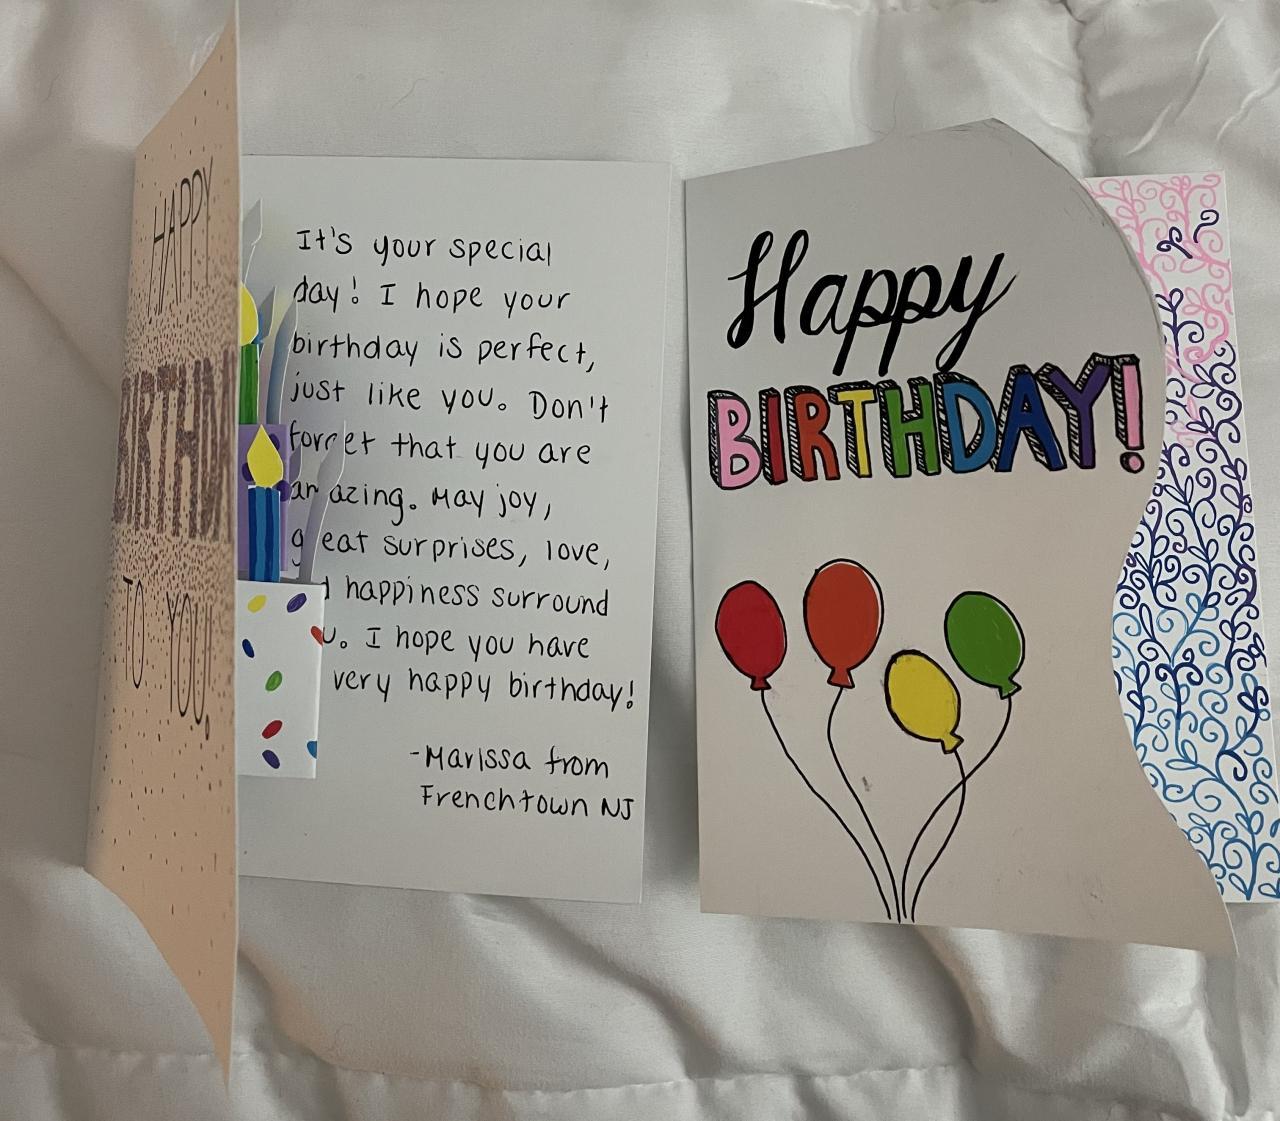 HAPPY
BIRTHD
TO YOU!
It's your special
day! I hope your
birthday is perfect,
just like you. Don't
forget that you are
amazing. May joy,
great surprises, love,
happiness surround
I hope you have
very happy birthday!
-Marissa from
Frenchtown NJ
Happy
BIRTHDAY!